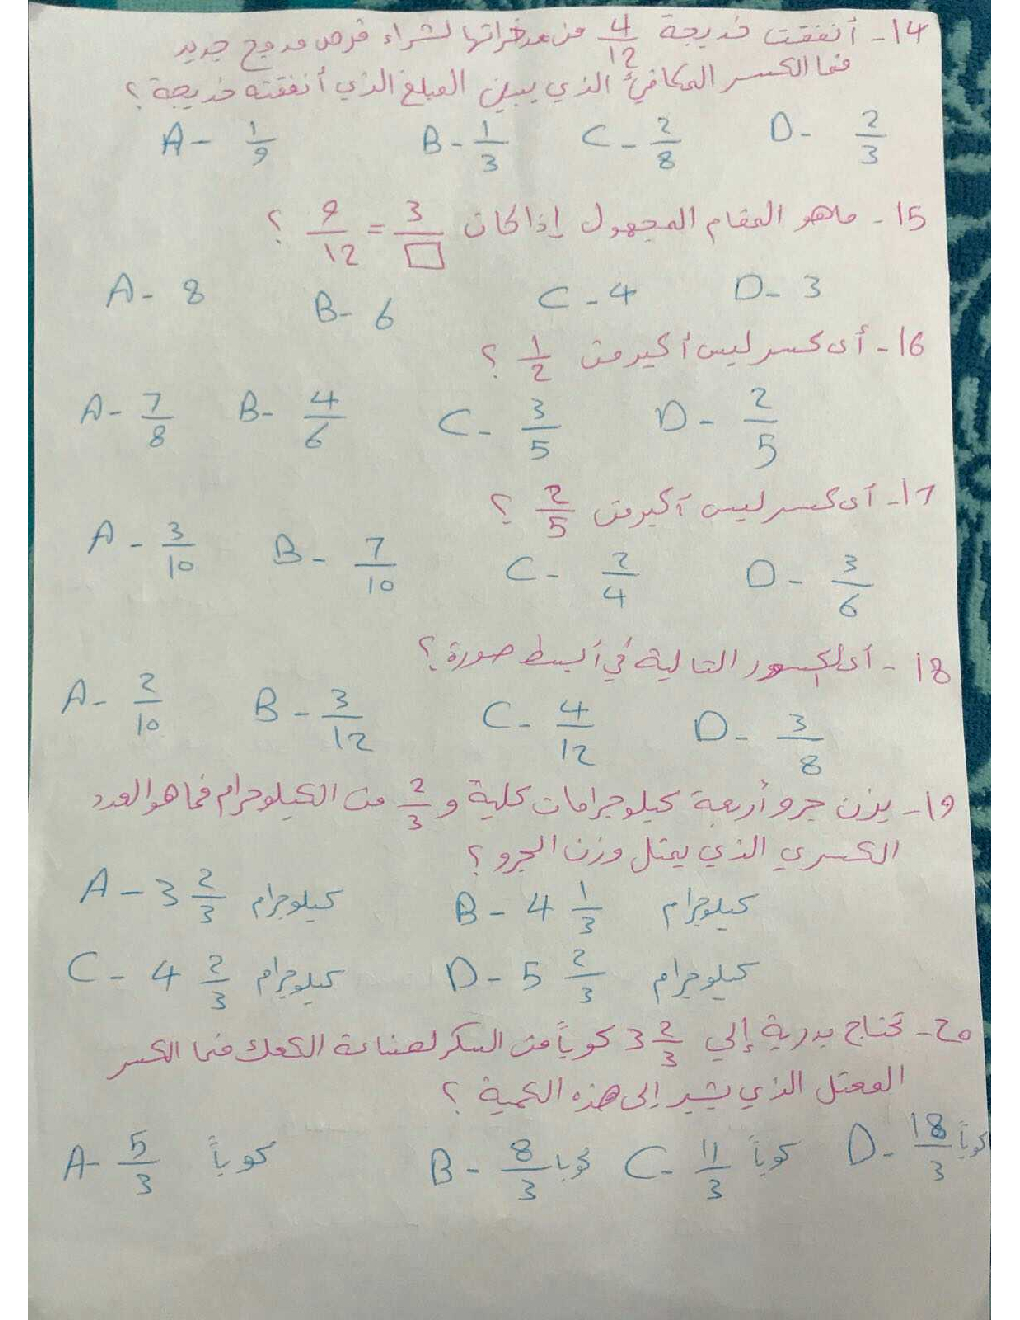 14- أنفقت خديجة 4/12 من مدخراتها لشراء قرص مدمج جديد
فما الكسر المكافئ الذي يبين المبلغ الذي أنفقته خديجة ؟
A- 1/9 B- 1/3 C- 2/8 D- 2/3
15- ماهو المقام المجهول إذا كان 3/□ = 9/12 ؟
A- 8 B- 6 C- 4 D- 3
16- أى كسر ليس أكبر من 1/2 ؟
A- 7/8 B- 4/6 C- 3/5 D- 2/5
17- أى كسر ليس أكبر من 2/5 ؟
A- 3/10 B- 7/10 C- 2/4 D- 3/6
18- أى الكسور التالية في أبسط صورة ؟
A- 2/10 B- 3/12 C- 4/12 D- 3/8
19- يزن جرو أربعة كيلوجرامات كلية و 2/3 من الكيلوجرام فما هو العدد
الكسري الذي يمثل وزن الجرو ؟
A- 3 2/3 كيلوجرام B- 4 1/3 كيلوجرام
C- 4 2/3 كيلوجرام D- 5 2/3 كيلوجرام
20- تحتاج بدرية إلي 3 2/3 كوباً من السكر لصناعة الكعك فما الكسر
المعتل الذي يشير إلى هذه الكمية ؟
A- 5/3 كوباً B- 8/3 كوباً C- 11/3 كوباً D- 18/3 كوباً